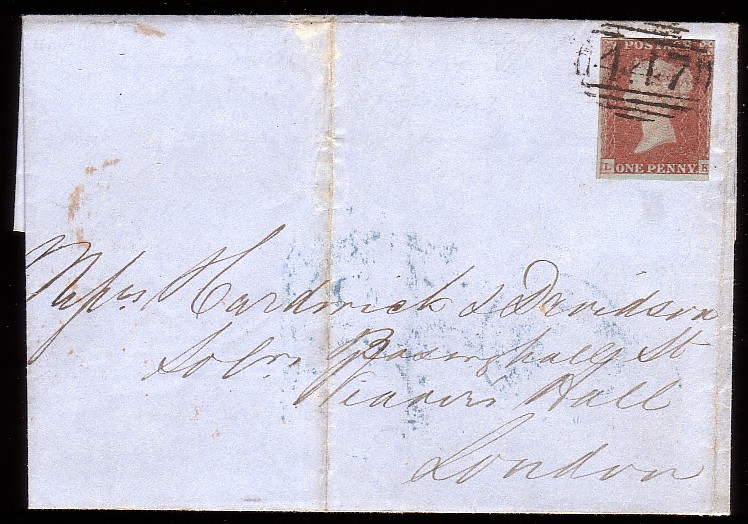 POSTAGE
447
L ONE PENNY K
Messrs Hardwick & Davidson
Solrs Basinghall St
Weavers Hall
London